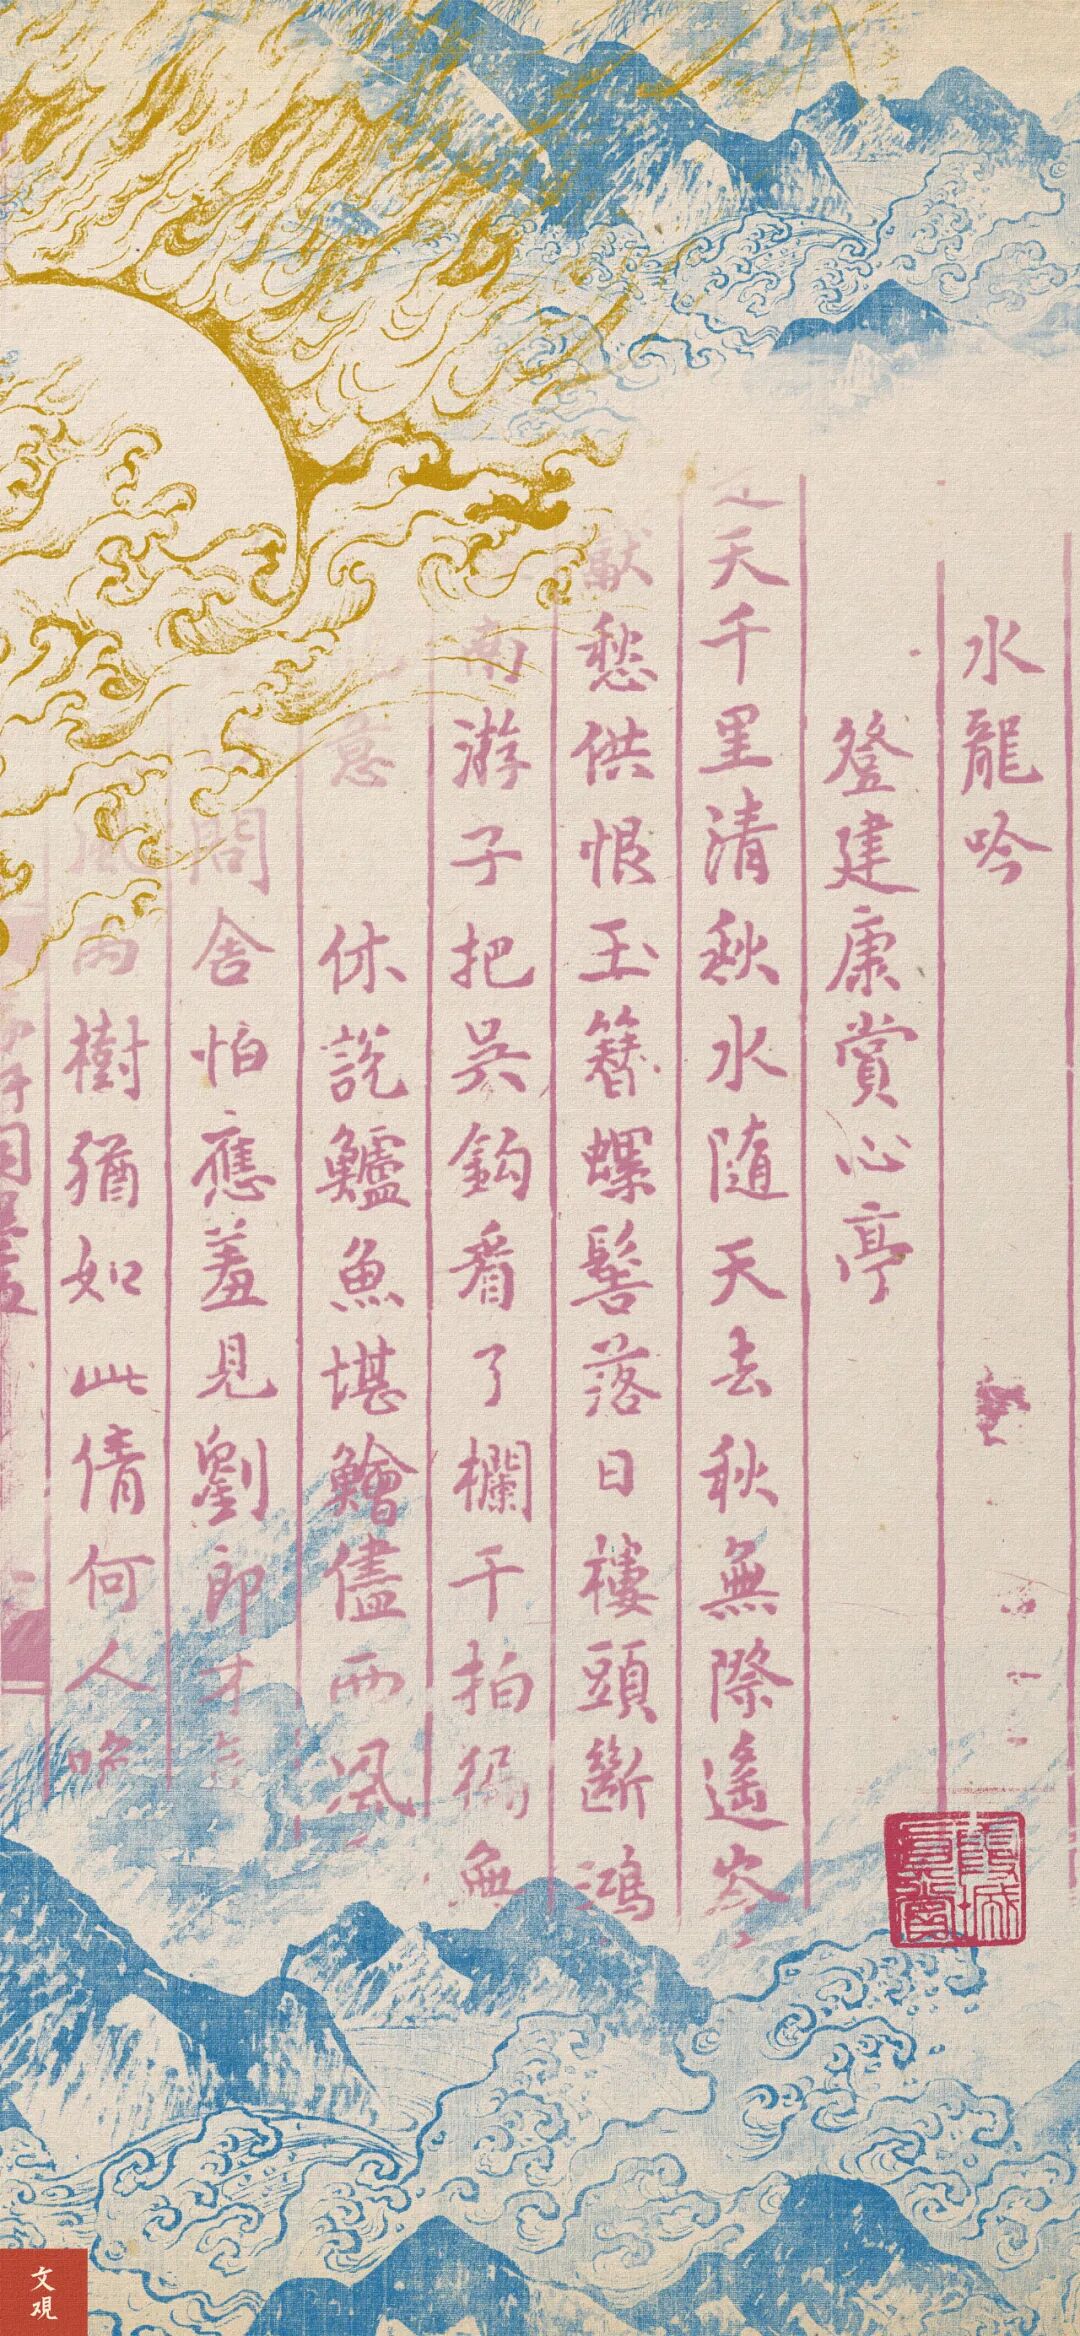 水龍吟
登建康賞心亭
天千里清秋水隨天去秋無際遙岑
獻愁供恨玉簪螺髻落日樓頭斷鴻
南游子把吳鈎看了欄干拍徧無
意　休說鱸魚堪鱠儘西風
問舍怕應羞見劉郎才氣
風雨樹猶如此倩何人喚
文覌